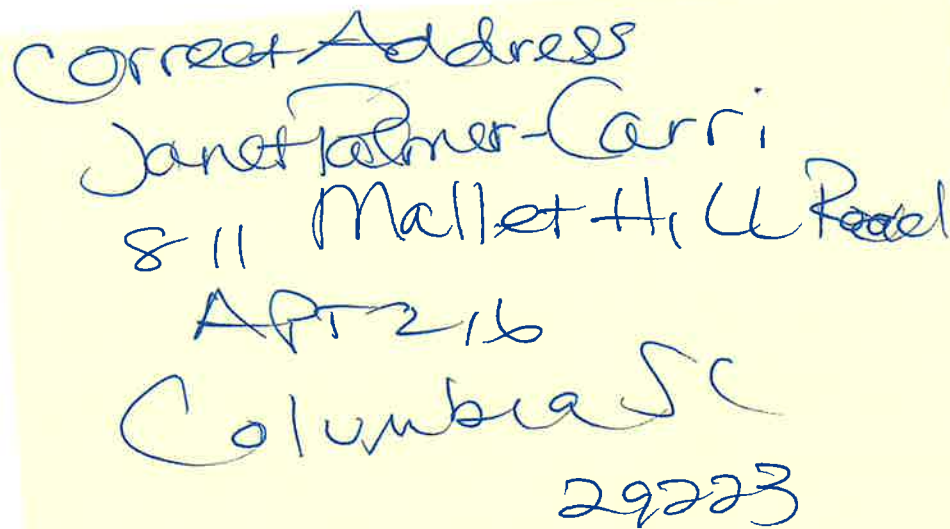 Correct Address
Janet Palmer-Carri
811 Mallet Hill Road
APT 216
Columbia SC
29223